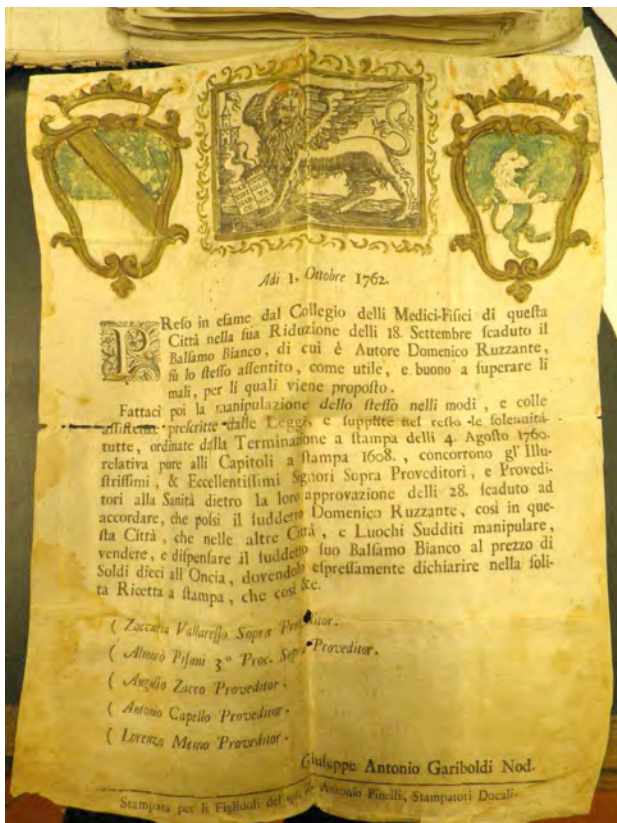 Adi 1. Ottobre 1762.
PReso in esame dal Collegio delli Medici-Fisici di questa
Città nella sua Riduzione delli 18. Settembre scaduto il
Balsamo Bianco, di cui è Autore Domenico Ruzzante,
fù lo stesso assentito, come utile, e buono a superare li
mali, per li quali viene proposto.
Fattaci poi la manipulazione dello stesso nelli modi, e colle
assistenze prescritte dalle Leggi, e supplite nel resto le solennità
tutte, ordinate dalla Terminazione a stampa delli 4. Agosto 1760.
relativa pure alli Capitoli a stampa 1608., concorrono gl' Illu-
strissimi, & Eccellentissimi Signori Sopra Proveditori, e Provedi-
tori alla Sanità dietro la loro approvazione delli 28. scaduto ad
accordare, che possi il suddetto Domenico Ruzzante, così in que-
sta Città, che nelle altre Città, e Luochi Sudditi manipulare,
vendere, e dispensare il suddetto suo Balsamo Bianco al prezzo di
Soldi dieci all'Oncia, dovendolo espressamente dichiarire nella soli-
ta Ricetta a stampa, che così &c.
( Zaccaria Vallaresso Sopra Proveditor.
( Almorò Pisani 3° Proc. Sopra Proveditor.
( Angelo Zacco Proveditor.
( Antonio Capello Proveditor.
( Lorenzo Memo Proveditor.
Giuseppe Antonio Gariboldi Nod.
Stampata per li Figliuoli del qu. Z. Antonio Pinelli, Stampatori Ducali.